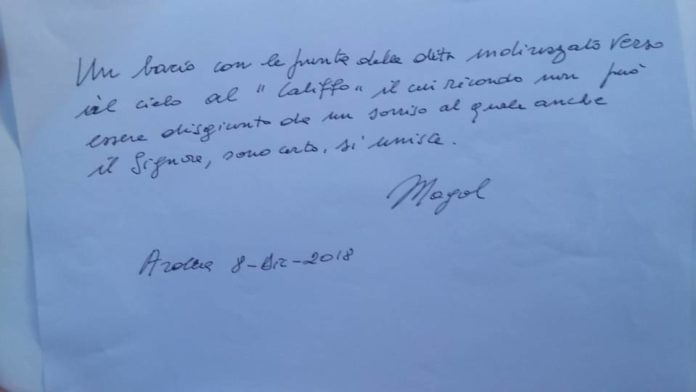 Un bacio con le punte delle dita indirizzato verso
il cielo al "Califfo" il cui ricordo non può
essere disgiunto da un sorriso al quale anche
il Signore, sono certo, si unisce.
Mogol
8-Dic-2018